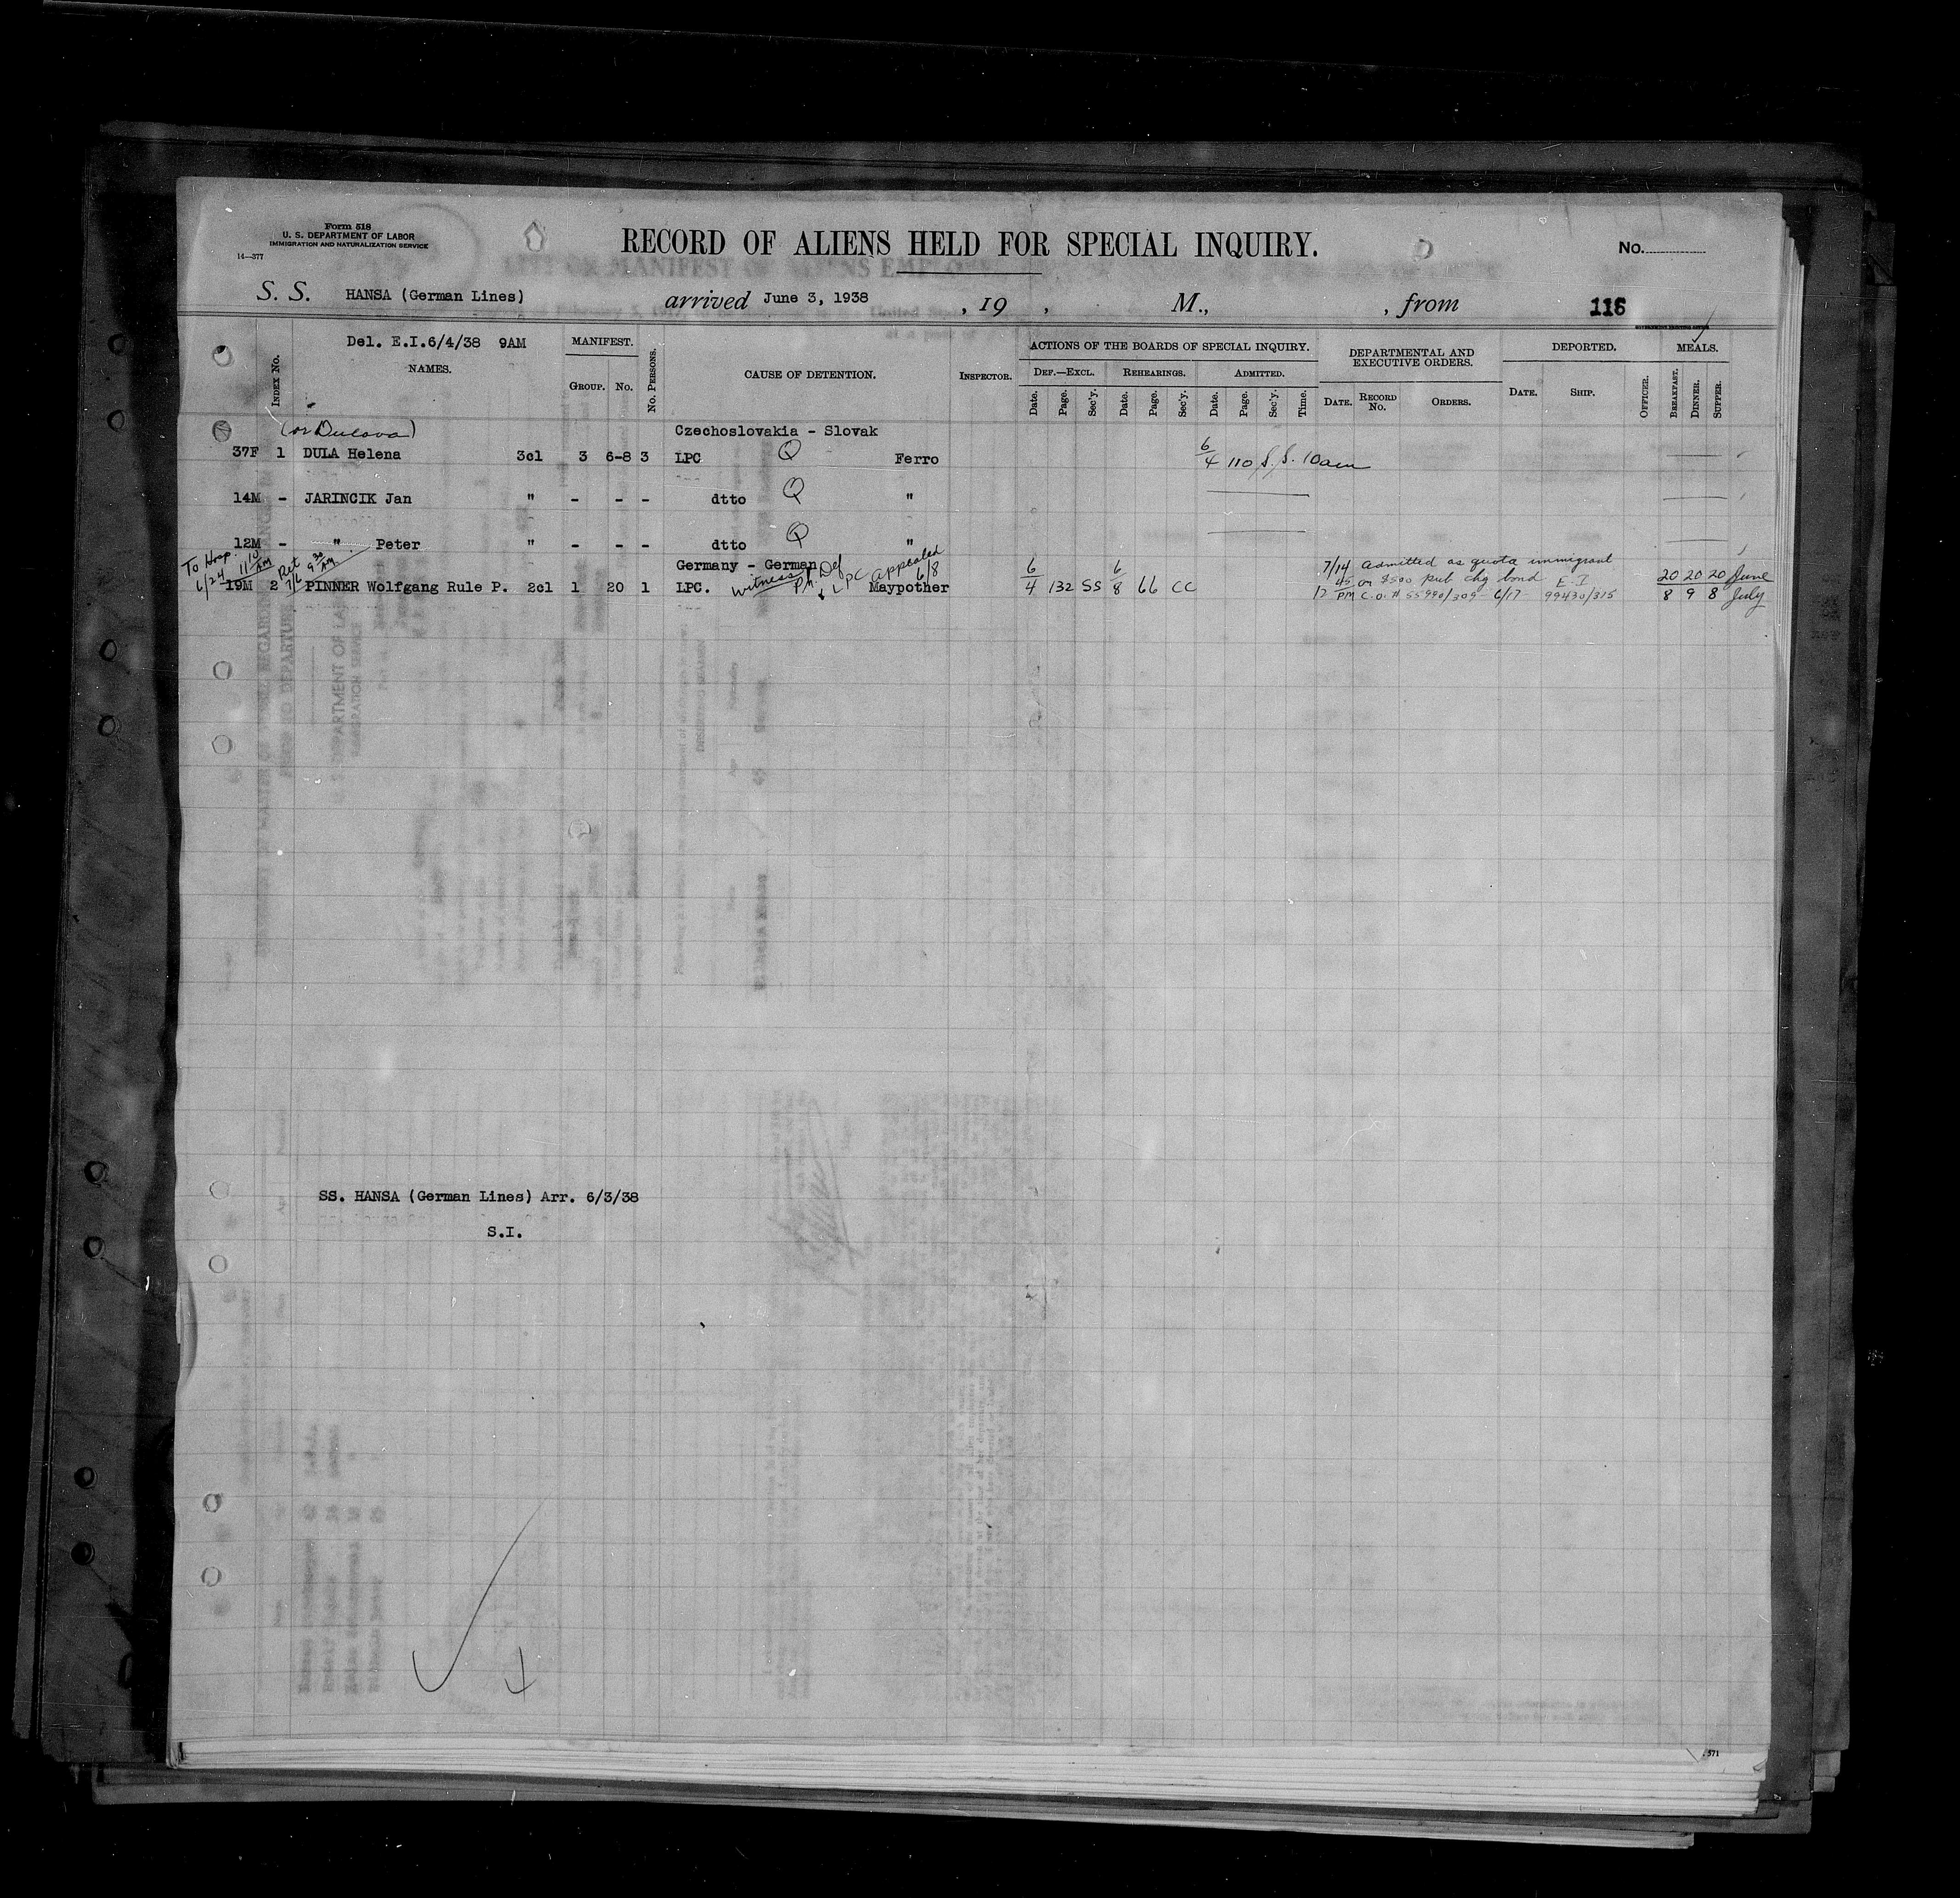 Form 518
U. S. DEPARTMENT OF LABOR
IMMIGRATION AND NATURALIZATION SERVICE
14—377
RECORD OF ALIENS HELD FOR SPECIAL INQUIRY.
No.
S. S. HANSA (German Lines) arrived June 3, 1938 , 19 , M., , from 116
Del. E.I.6/4/38 9AM
INDEX No. NAMES. MANIFEST. GROUP. No. No. PERSONS. CAUSE OF DETENTION. INSPECTOR.
ACTIONS OF THE BOARDS OF SPECIAL INQUIRY.
DEF.—EXCL. Date. Page. Sec'y. REHEARINGS. Date. Page. Sec'y. ADMITTED. Date. Page. Sec'y. Time.
DEPARTMENTAL AND EXECUTIVE ORDERS. DATE. RECORD No. ORDERS.
DEPORTED. DATE. SHIP. OFFICER.
MEALS. BREAKFAST. DINNER. SUPPER.
(or Dulova) Czechoslovakia - Slovak
37F 1 DULA Helena 3cl 3 6-8 3 LPC Q Ferro 6/4 110 S.S. 10am
14M - JARINCIK Jan " - - - dtto Q "
12M - " Peter " - - - dtto Q "
To Hosp. 6/24 11 10 AM Ret 7/6 9 30 AM Germany - German Def appealed 6/8 7/14 admitted as quota immigrant
19M 2 PINNER Wolfgang Rule P. 2cl 1 20 1 LPC. witness LPC Maypother 6/4 132 SS 6/8 66 CC 45 on $500 pub chg bond E.I 20 20 20 June
12 PM C.O.# 55990/309 6/17 99430/315 8 9 8 July
SS. HANSA (German Lines) Arr. 6/3/38
S.I.
571